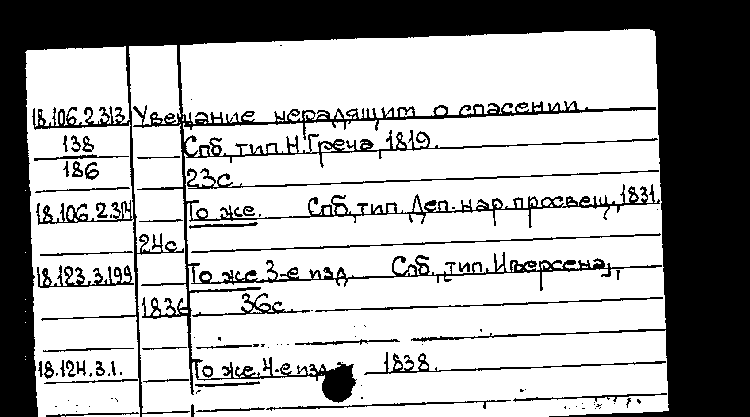 18.106.2.313 Увещание нерадящим о спасении.
138 Спб, тип. Н. Греча, 1819.
186
23с.
18.106.2.314 То же. Спб, тип. Деп. нар. просвещ., 1831.
24с.
18.123.3.199 То же. 3-е изд. Спб, тип. Иверсена,
1836. 36с.
18.124.3.1. То же. 4-е изд. 1838.